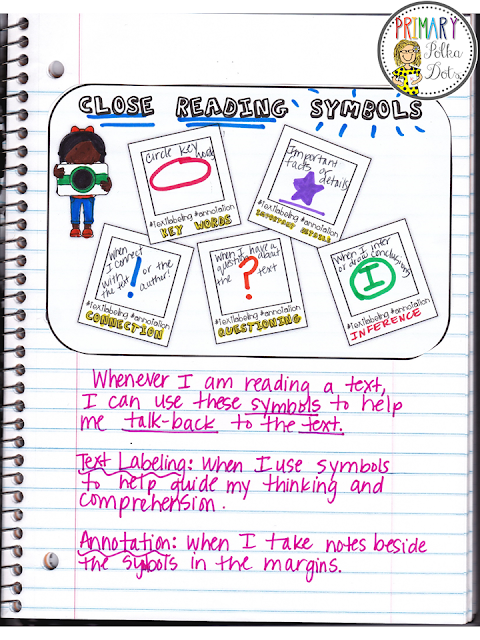 PRIMARY
Polka
Dots
CLOSE READING SYMBOLS
circle key
words
#textlabeling #annotation
KEY WORDS
Important
facts or
details
#textlabeling #annotation
IMPORTANT DETAILS
When
I connect
with
the text
or the
author!
!
#textlabeling #annotation
CONNECTION
When I have a
question about
the ? text
#textlabeling #annotation
QUESTIONING
When I infer
or draw conclusions
I
#textlabeling #annotation
INFERENCE
Whenever I am reading a text,
I can use these symbols to help
me talk-back to the text.
Text Labeling: when I use symbols
to help guide my thinking and
comprehension.
Annotation: when I take notes beside
the symbols in the margins.